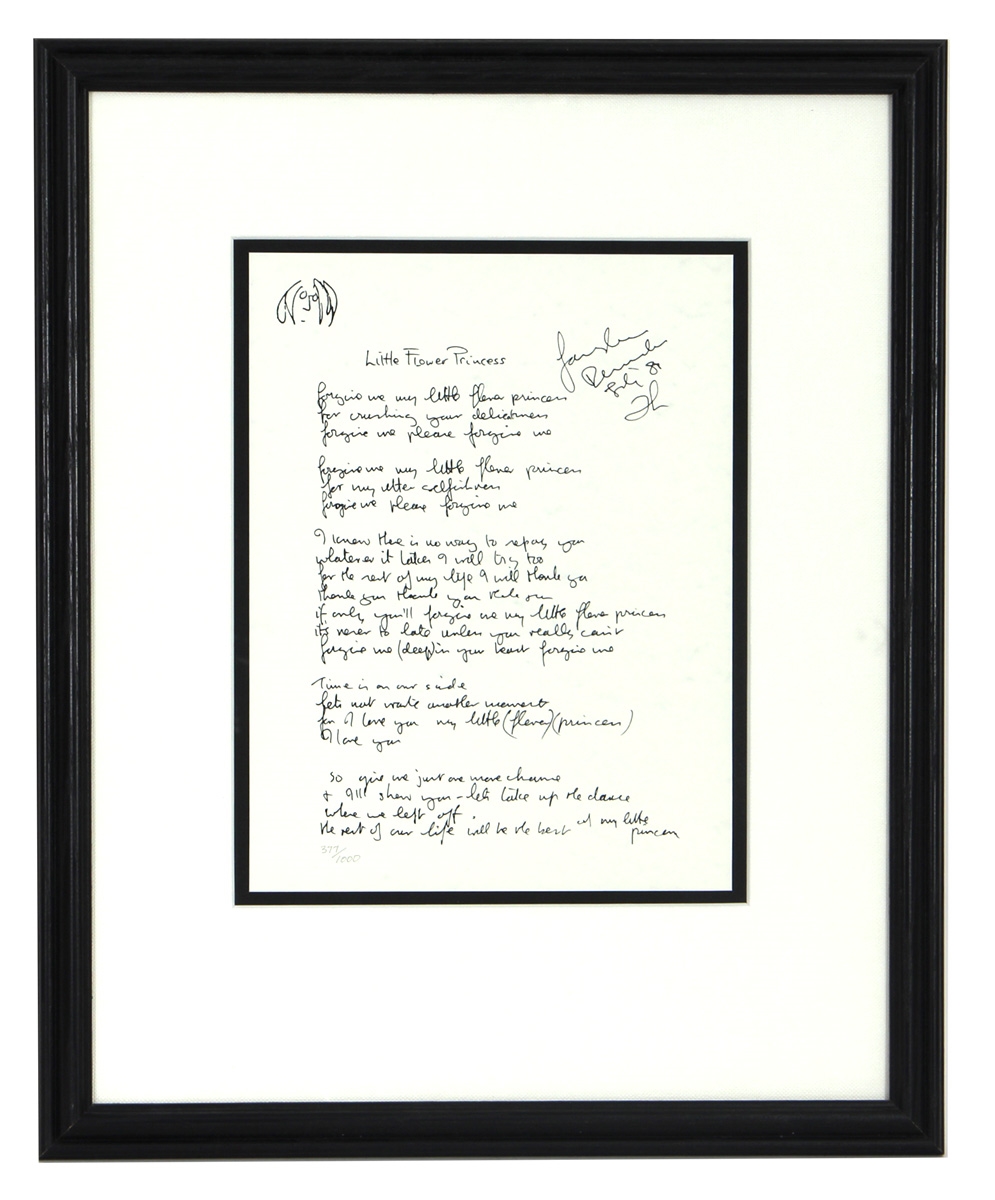 Little Flower Princess
forgive me my little flower princess
for crushing your delicateness
forgive me please forgive me
forgive me my little flower princess
for my utter selfishness
forgive me please forgive me
I know there is no way to repay you
whatever it takes I will try too
for the rest of my life I will thank you
thank you thank you thank you
if only you'll forgive me my little flower princess
its never to late unless you really can't
forgive me (deep) in your heart forgive me
Time is on our side
lets not waste another moment
for I love you my little (flower) (princess)
I love you
so give me just one more chance
+ I'll show you - lets take up the dance
where we left off
the rest of our life will be the best my little
princess
377/1000